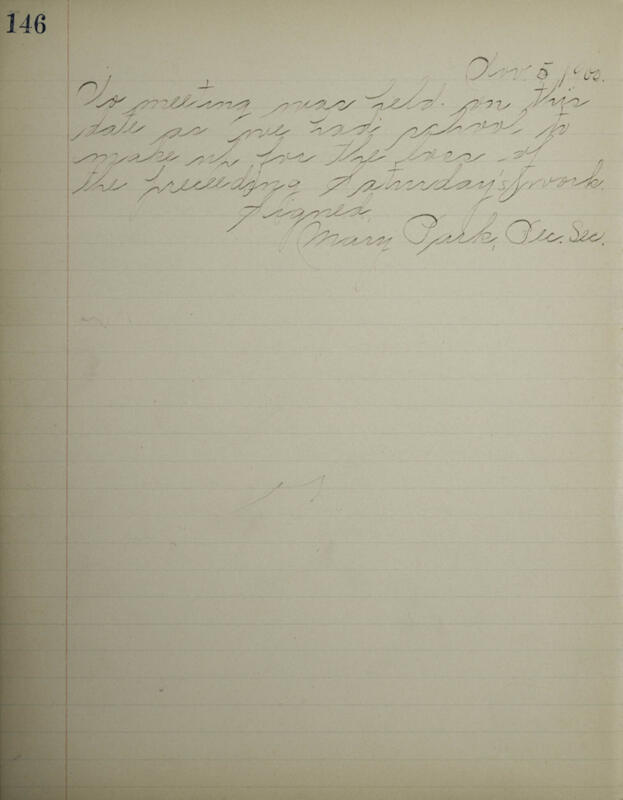 146
Nov. 5 1900.
No meeting was held on this
date as we had school to
make up for the loss of
the preceeding Saturday's work.
Signed,
Mary Park, Rec. Sec.